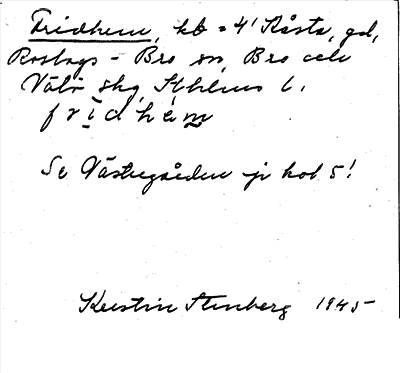 Fridhem, kb = 4¹ Råsta, gd,
Roslags-Bro sn, Bro och
Vätö skg, Sthlms l.
fridhem
Se Västergården på kol 5!
Kerstin Stenberg 1945